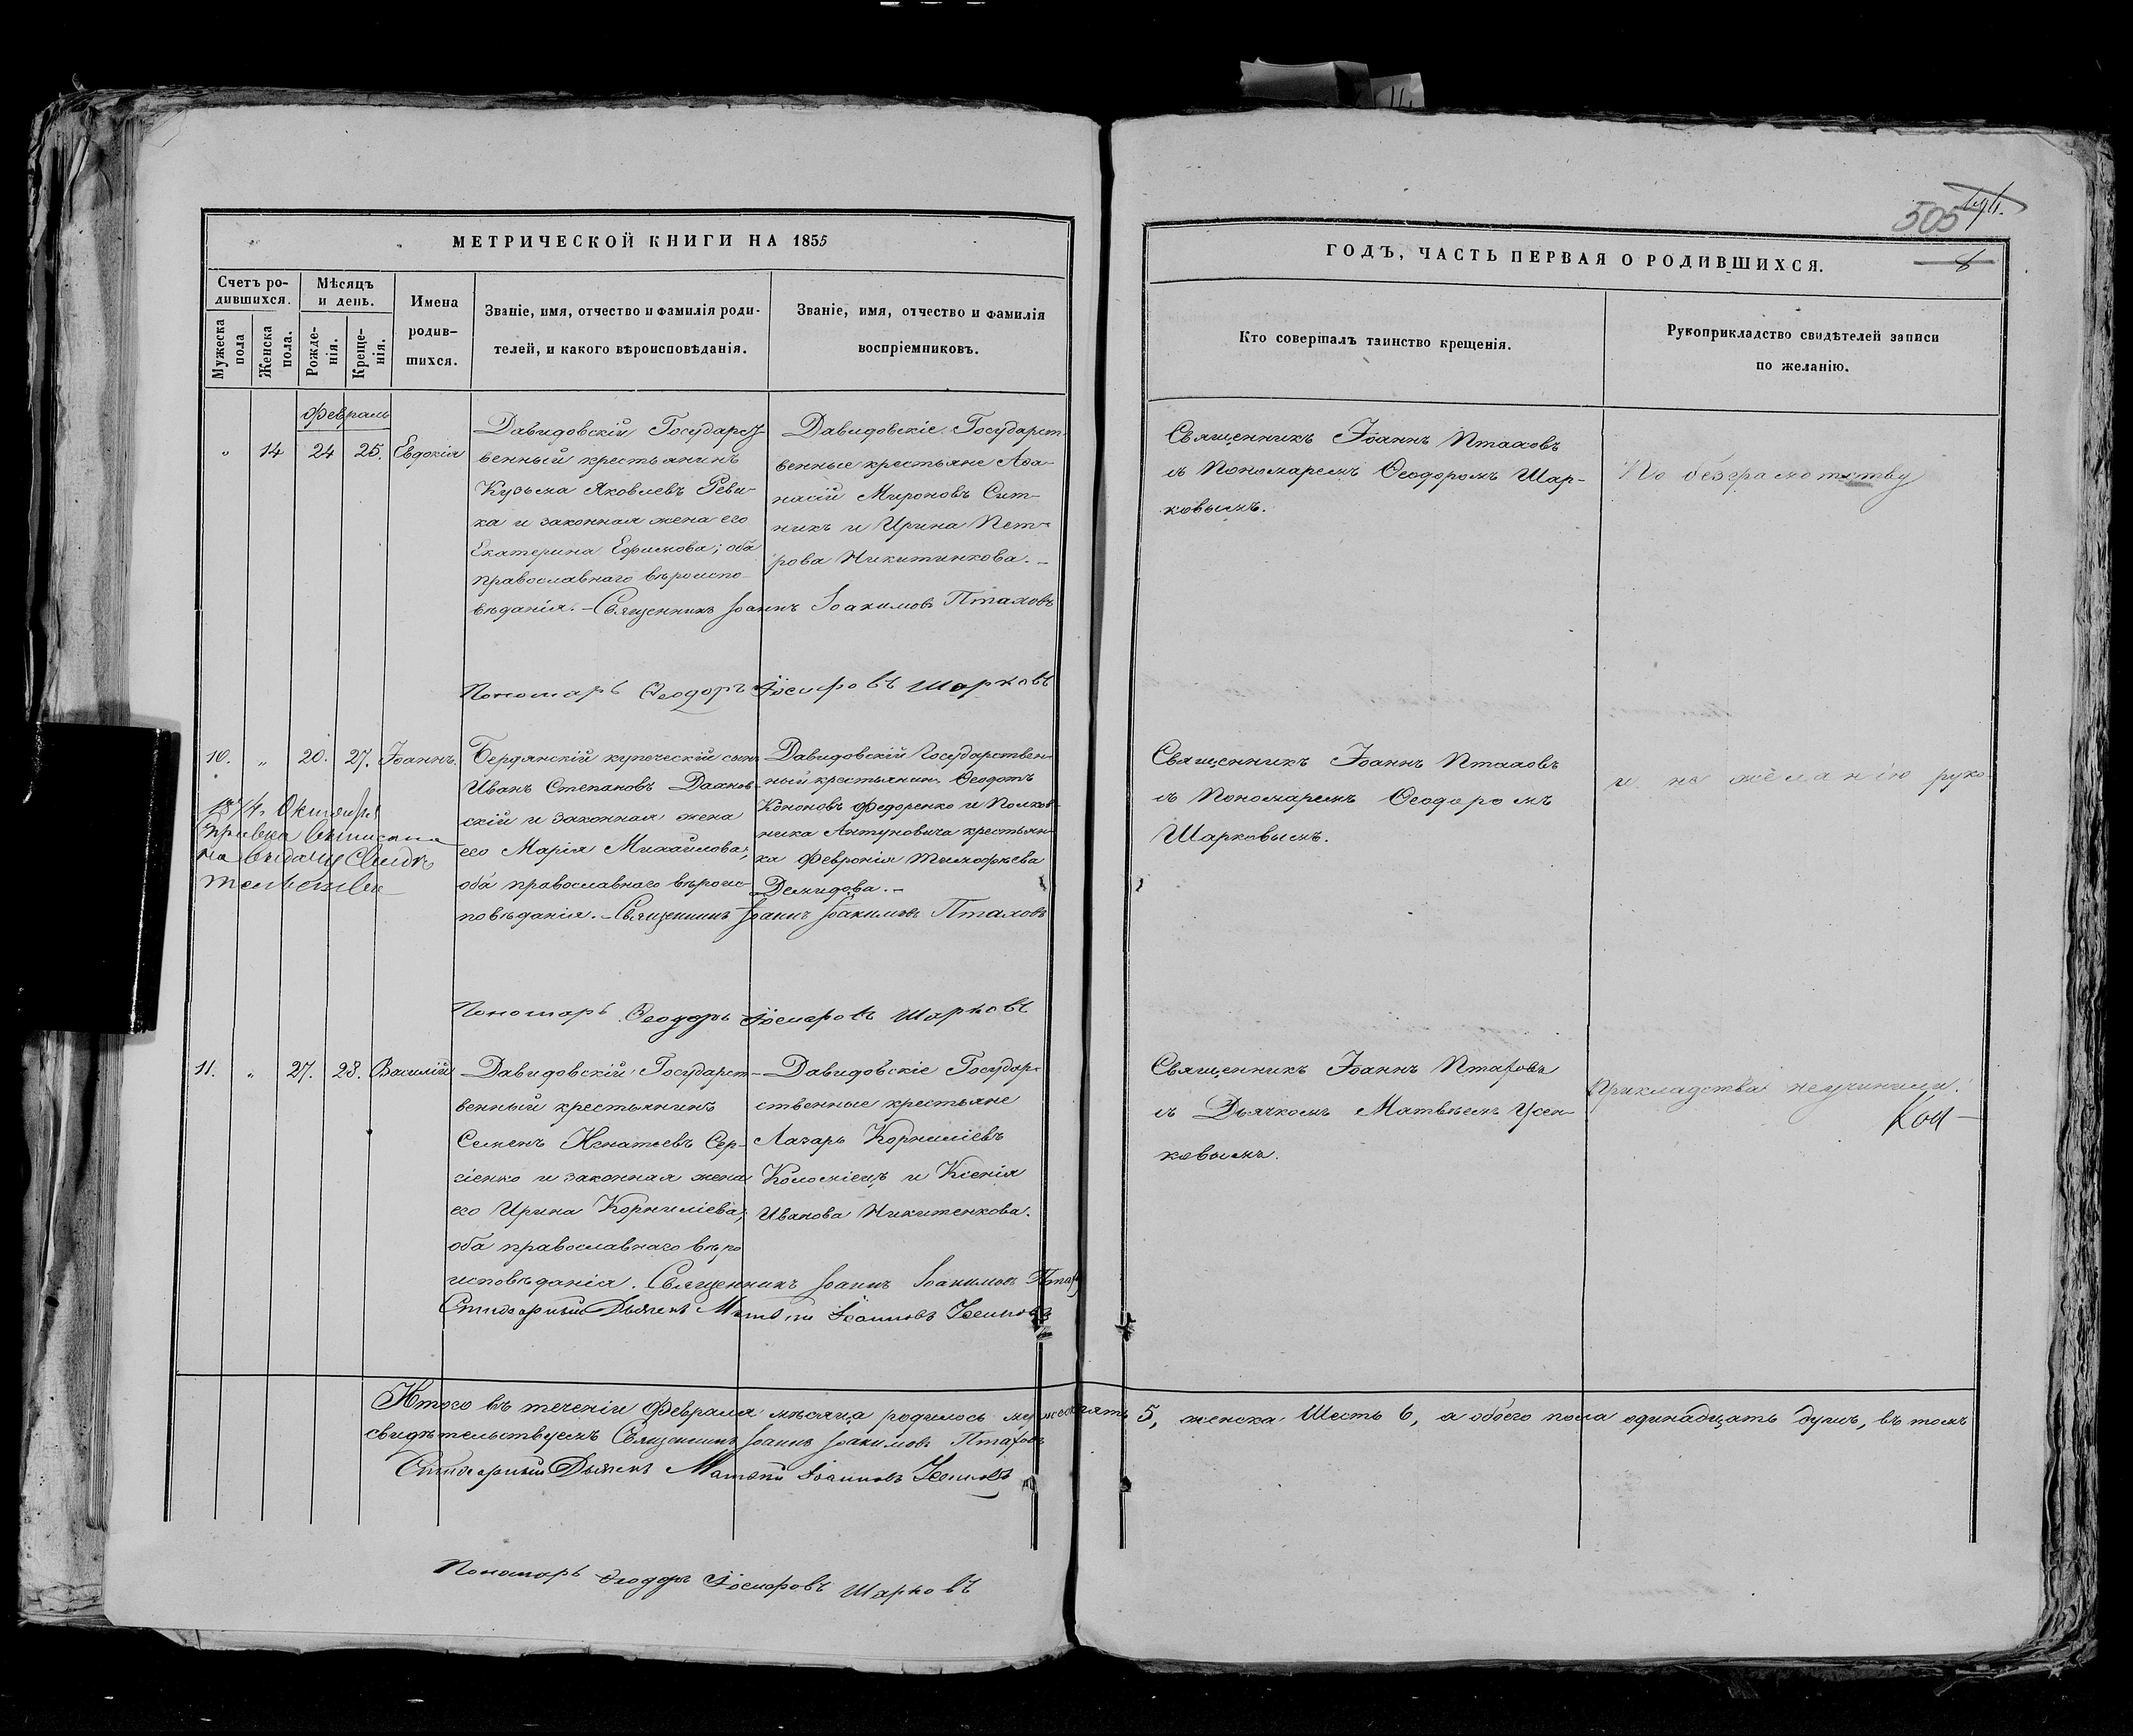 505
МЕТРИЧЕСКОЙ КНИГИ НА 1855
ГОДЪ, ЧАСТЬ ПЕРВАЯ О РОДИВШИХСЯ.
8
Счетъ ро-
дившихся.
Мужеска
пола
Женска
пола.
Мѣсяцъ
и день.
Рожде-
нія.
Креще-
нія.
Имена
родив-
шихся.
Званіе, имя, отчество и фамилія роди-
телей, и какого вѣроисповѣданія.
Званіе, имя, отчество и фамилія
воспріемниковъ.
Кто совершалъ таинство крещенія.
Рукоприкладство свидѣтелей записи
по желанію.
Февраль
14 24 25. Евдокія
Давидовскій Государст-
венный крестьянинъ
Кузьма Яковлевъ Реви-
ка и законная жена его
Екатерина Ефимова; оба
православнаго вѣроиспо-
вѣданія. – Священникъ Іоаннъ Іоакимовъ Птаховъ
Давидовскіе Государст-
венные крестьяне Аѳа-
насій Мироновъ Сит-
никъ и Ирина Пет-
рова Никитинкова. –
Священникъ Іоаннъ Птаховъ
съ Пономаремъ Ѳеодоромъ Шар-
ковымъ.
По безграмотству
Пономарь Ѳеодоръ Іосифовъ Шарковъ
10. „ 20. 27. Іоаннъ.
1874. Октября
на выдачу Свидѣ
тельства
Бердянскій купеческій сынъ
Иванъ Степановъ
скій и законная жена
его Марія Михайлова;
оба православнаго вѣроис-
повѣданія. – Священникъ Іоаннъ Іоакимовъ Птаховъ
Давидовскій Государствен-
ный крестьянинъ Ѳеодотъ
Кононовъ Федоренко и Полков-
ника Антуновича крестьян-
ка Февронія Тимофѣева
Демидова. –
Священникъ Іоаннъ Птаховъ
съ Пономаремъ Ѳеодоромъ
Шарковымъ.
и не желанію руко-
Пономарь Ѳеодоръ Іосифовъ Шарковъ
11. „ 27. 28. Василій
Давидовскій Государст-
венный крестьянинъ
Семенъ Игнатьевъ Сер-
гіенко и законная жена
его Ирина Корниліева;
оба православнаго вѣро
исповѣданія. Священникъ Іоаннъ Іоакимовъ Птах
Давидовскіе Государ-
ственные крестьяне
Лазарь Корниліевъ
Коломіецъ и Ксенія
Иванова Никитенкова.
Священникъ Іоаннъ Птаховъ
съ Дьячкомъ Матвѣемъ Усен-
ковымъ.
прикладства неучинили.
Дьячекъ Матвѣй Іоанновъ Усенковъ
Итого въ теченіи Февраля мѣсяца родилось мужеска пять 5, женска Шесть 6, а обоего пола одинадцать душъ, въ томъ
свидѣтельствуемъ Священникъ Іоаннъ Іоакимовъ Птаховъ
Дьячекъ Матвѣй Іоанновъ Усенковъ
Пономарь Ѳеодоръ Іосифовъ Шарковъ